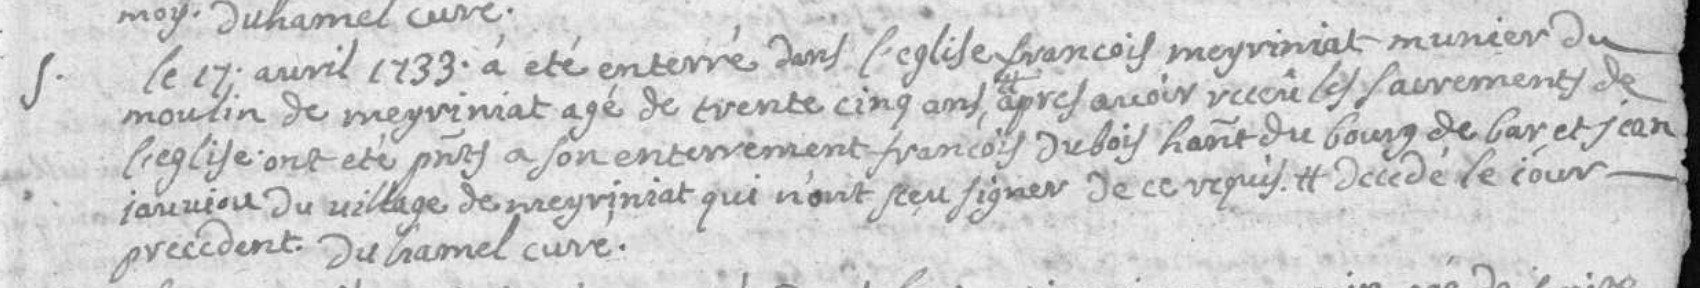 moy. Duhamel curé.
S. le 17. auvril 1733. á eté enterré dans l'eglise francois meyriniat munier du
moulin de meyriniat agé de trente cinq ans, # apres auoir receu les sacrements de
l'eglise. ont eté pñts a son enterrement francois Dubois hañt du bourg de bar et jean
jauuiou du village de meyriniat qui n'ont sceu signer de ce requis. # decedé le jour
precedent. Duhamel curé.